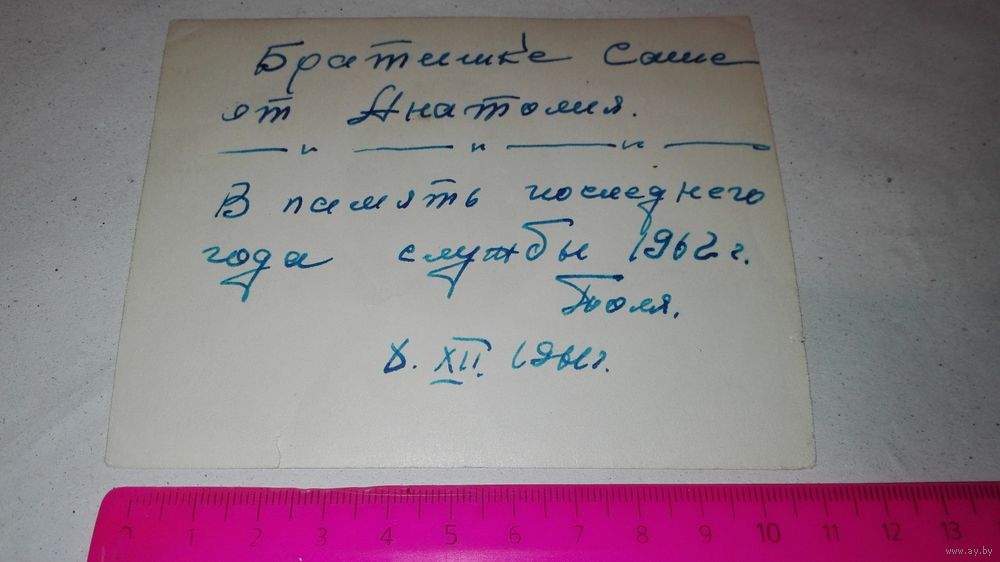 Братишке Саше
от Анатолия.
— " — " — " —
В память последнего
года службы 1962 г.
Толя.
8. XII. 1961г.
0 1 2 3 4 5 6 7 8 9 10 11 12 13
www.ay.by